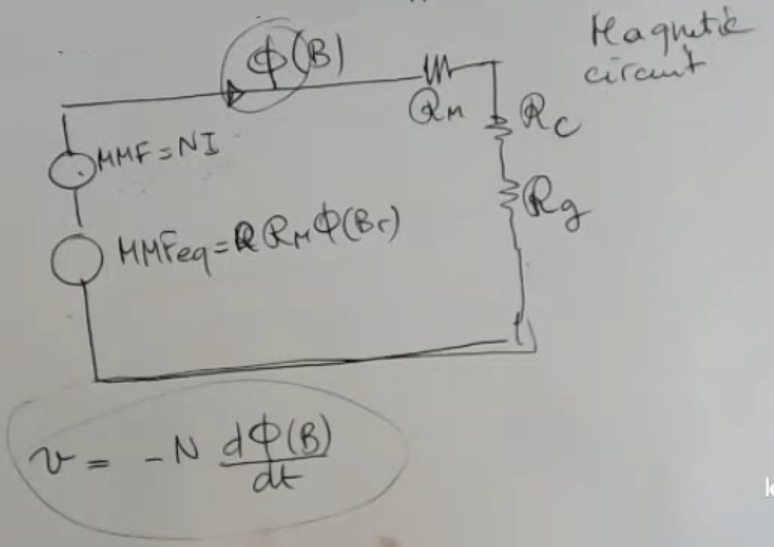 Magnetic
circuit
Φ(B)
R_M
R_C
R_g
MMF=NI
MMFeq=R_MΦ(Br)
v = -N dΦ(B)/dt